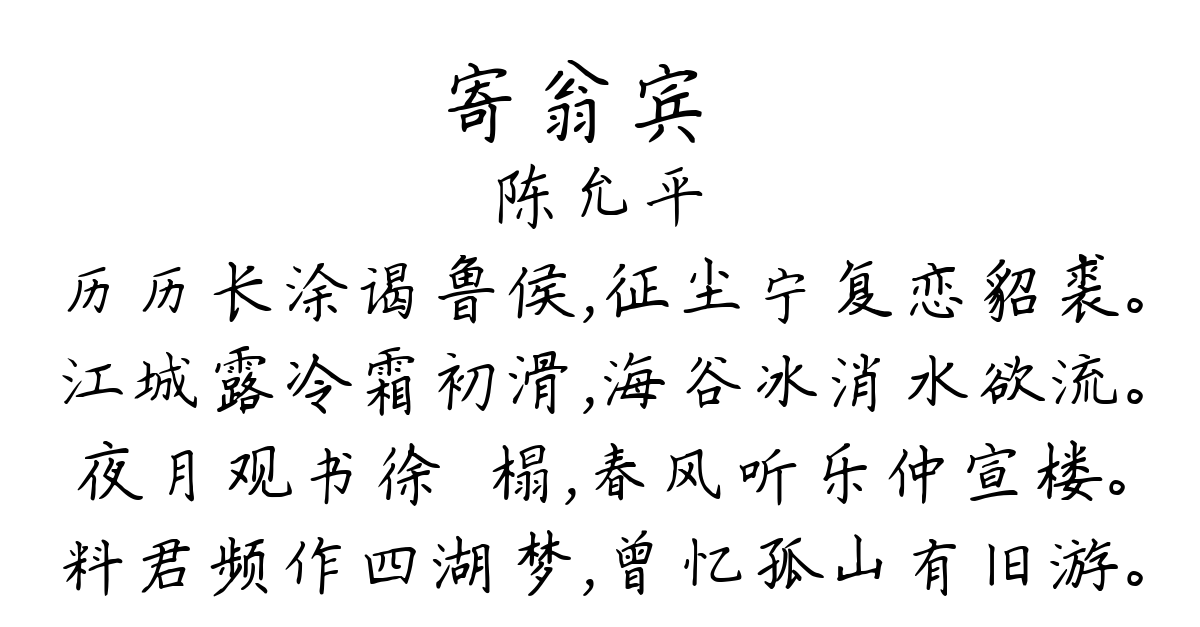 寄翁宾
陈允平
历历长涂谒鲁侯,征尘宁复恋貂裘。
江城露冷霜初滑,海谷冰消水欲流。
夜月观书徐 榻,春风听乐仲宣楼。
料君频作四湖梦,曾忆孤山有旧游。